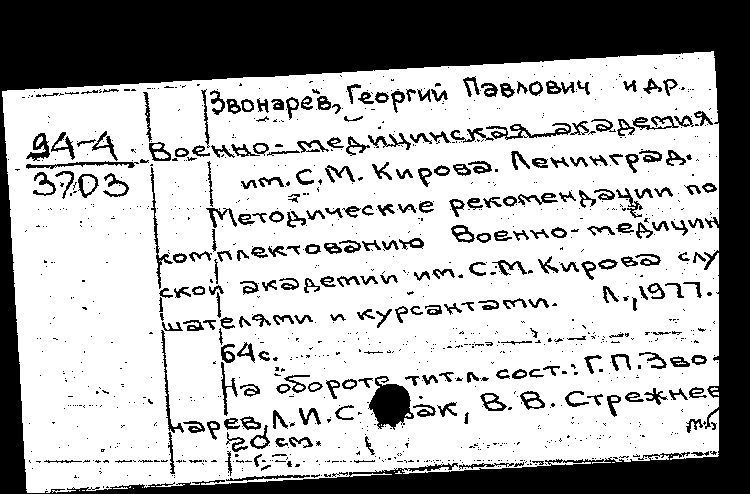 Звонарев, Георгий Павлович и др.
94-4 Военно-медицинская академия
3703 им. С.М. Кирова. Ленинград.
Методические рекомендации по
комплектованию Военно-медицин
ской академии им. С.М. Кирова слу
шателями и курсантами. Л., 1977.
64 с.
На обороте тит. л. сост.: Г.П. Зво-
нарев, Л.И. В.В. Стрежнев
20 см.